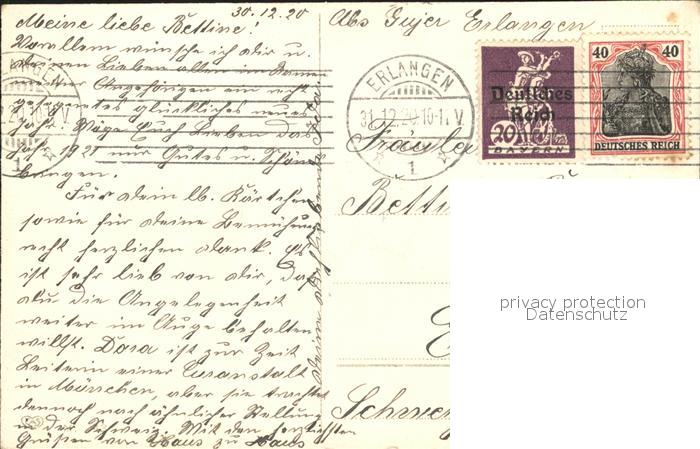 30.12.20
Meine liebe Bettine!
Vor allem wünsche ich dir u.
deinen Lieben allen im Namen
meiner Angehörigen ein recht
gesegnetes glückliches neues
Jahr. Möge Euch Lieben das
Jahr 1921 nur Gutes u. Schönes
bringen.
Für dein lb. Kärtchen
sowie für deine Bemühung
recht herzlichen Dank. Es
ist sehr lieb von dir, daß
du die Angelegenheit
weiter im Auge behalten
willst. Dora ist zur Zeit
Leiterin einer Curanstalt
in München, aber sie trachtet
dennoch nach ähnlicher Stellung
in der Schweiz. Mit den herzlichsten
Grüßen von Haus zu Haus
deine
Abs Gujer Erlangen
ERLANGEN
31.12.20.10-1.V.
1
Deutsches
Reich
20
BAYERN
40 40
DEUTSCHES REICH
Fräulein
Bettin
Schwei
privacy protection
Datenschutz